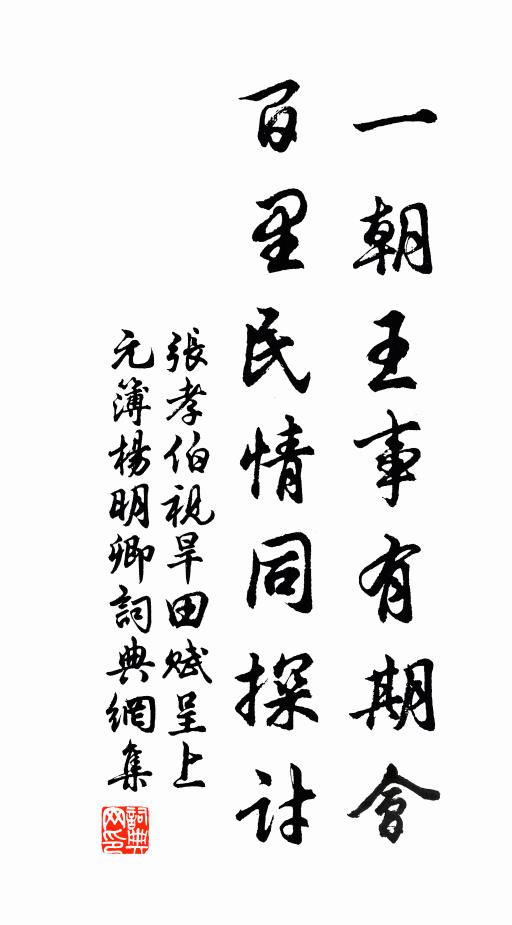 一朝王事有期會
百里民情同探討
張孝伯視旱田賦呈上
元簿楊明卿詞典網集
詞典
网印